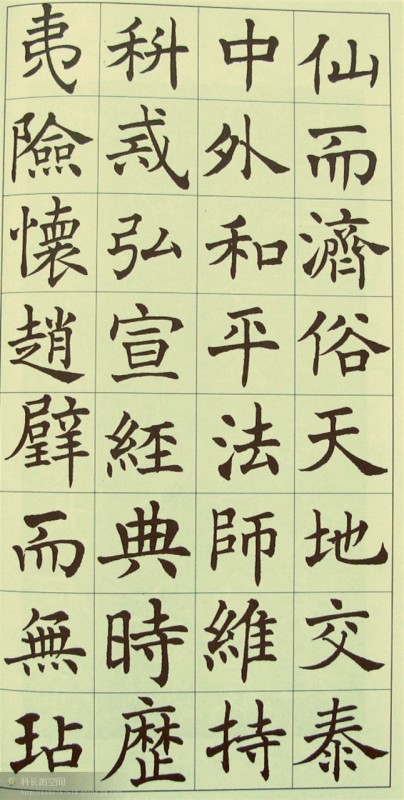 仙而濟俗天地交泰
中外和平法師維持
科戒弘宣經典時歷
夷險懷趙璧而無玷
科长的空间